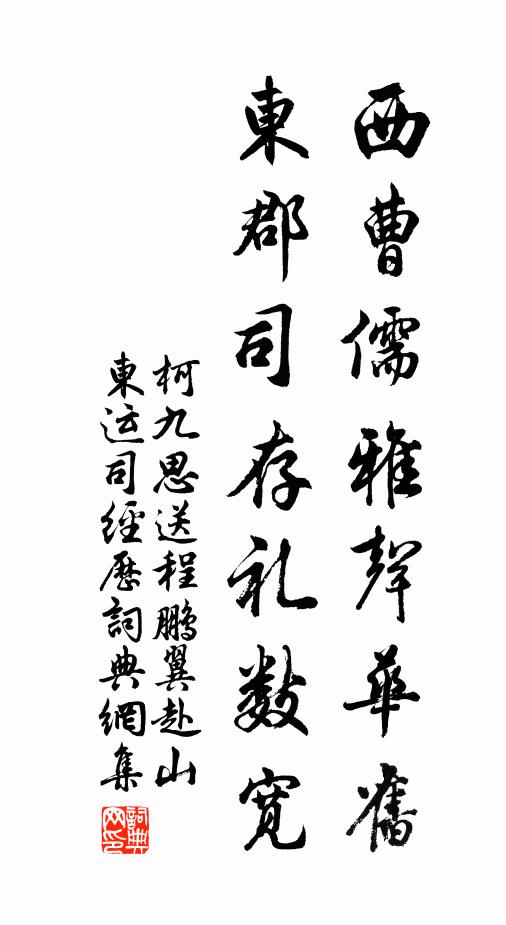 西曹儒雅聲華舊
東郡司存礼數寬
柯九思送程鵬翼赴山
東运司經歷詞典網集
詞典
网印